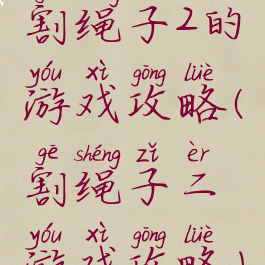 割绳子2的
yóu xì gōng lüè
游戏攻略(
gē shéng zǐ èr
割绳子二
yóu xì gōng lüè
游戏攻略)